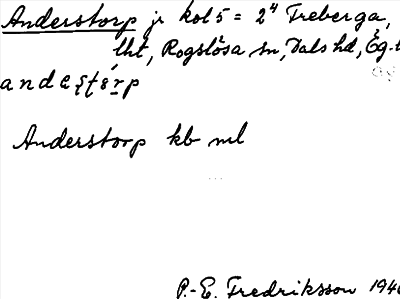 Anderstorp jr kol 5 = 2⁴ Treberga,
lht, Rogslösa sn, Dals hd, Ög.
Anderstorp kb ml
P.-E. Fredriksson 194